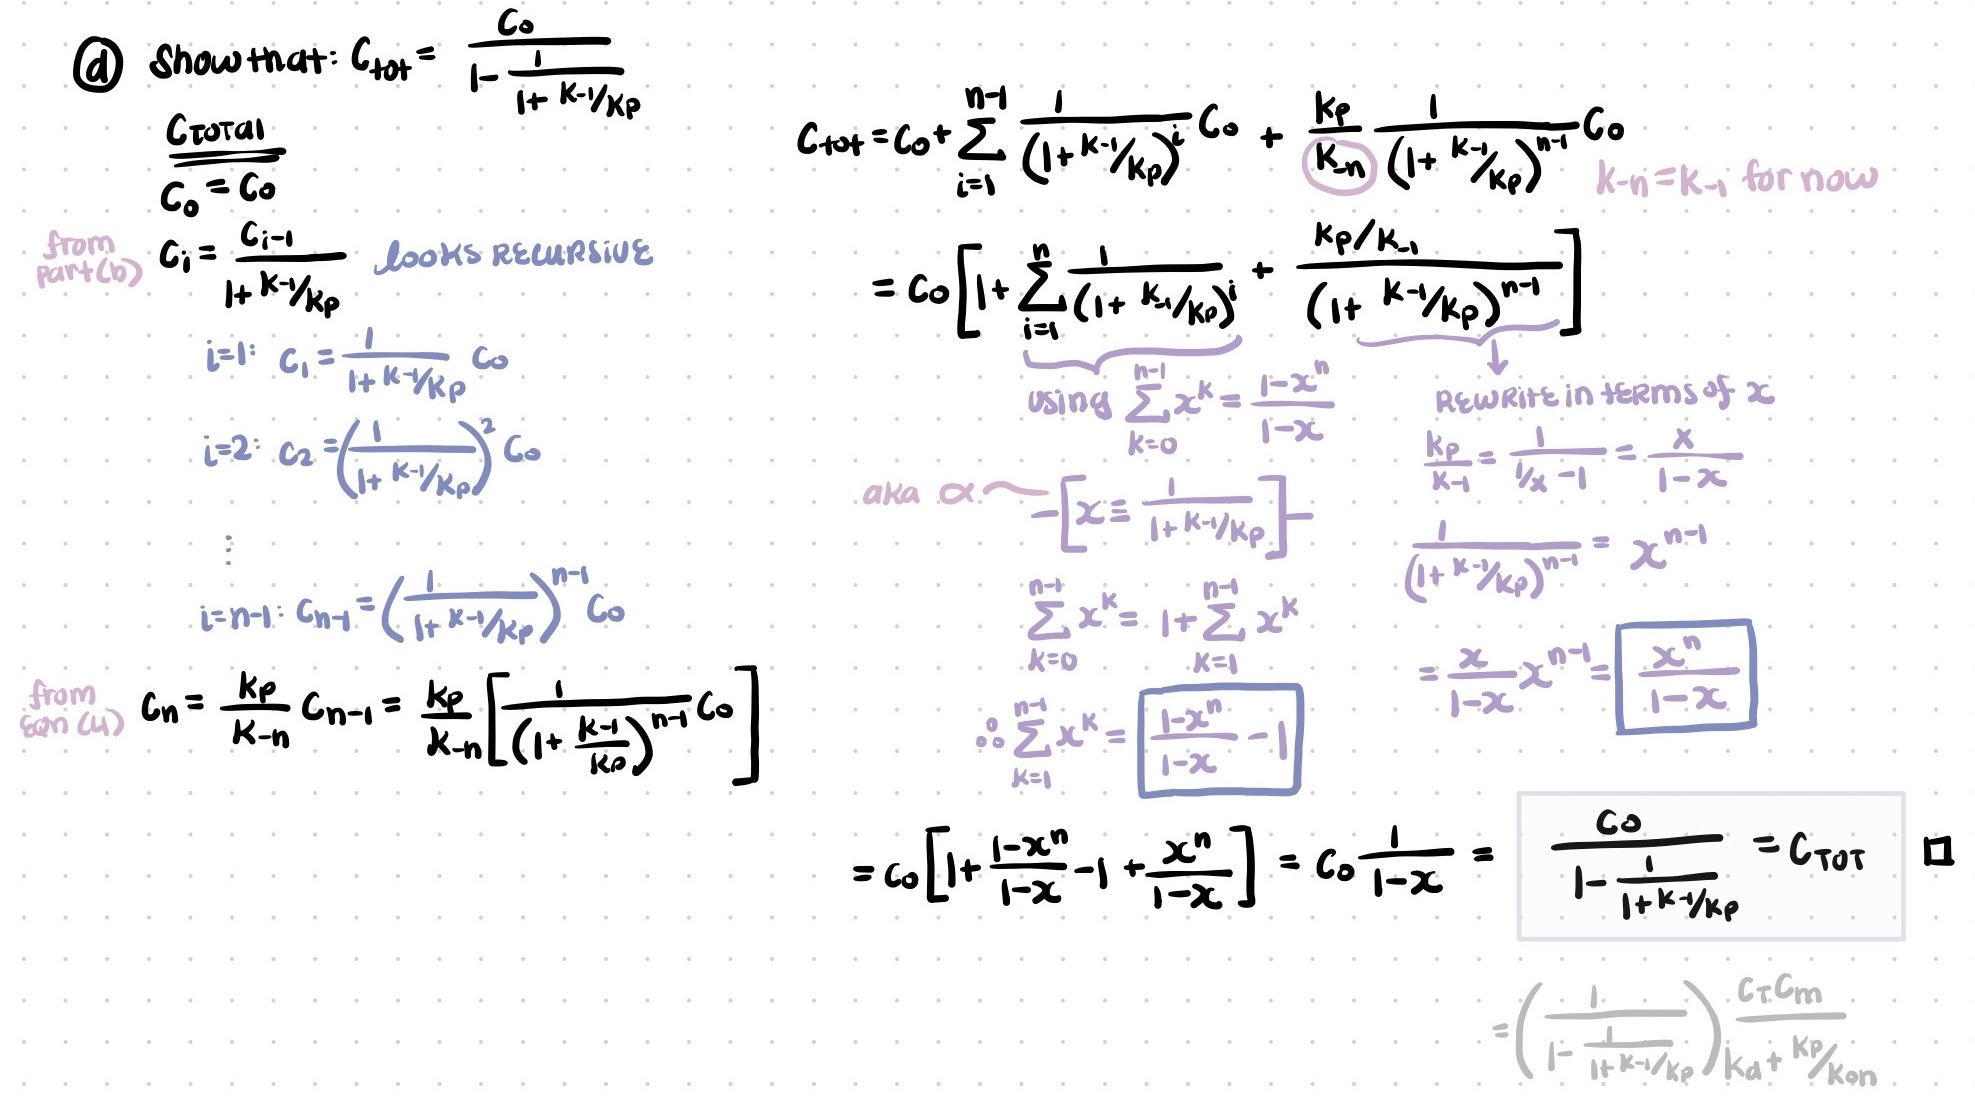 (d) Show that: C_tot = C_0 / (1 - 1/(1 + k_-1/k_p))
C_TOTAL
C_0 = C_0
from part (b)
C_i = C_{i-1} / (1 + k_-1/k_p) looks RECURSIVE
i=1: C_1 = 1/(1 + k_-1/k_p) C_0
i=2: C_2 = (1/(1 + k_-1/k_p))^2 C_0
⋮
i=n-1: C_{n-1} = (1/(1 + k_-1/k_p))^{n-1} C_0
from eqn (4)
C_n = k_p/k_-n C_{n-1} = k_p/k_-n [1/(1 + k_-1/k_p)^{n-1} C_0]
C_tot = C_0 + ∑_{i=1}^{n-1} 1/(1 + k_-1/k_p)^i C_0 + k_p/k_-n 1/(1 + k_-1/k_p)^{n-1} C_0
k_-n = k_-1 for now
= C_0 [1 + ∑_{i=1}^{n} 1/(1 + k_-1/k_p)^i + (k_p/k_-1)/(1 + k_-1/k_p)^{n-1}]
using ∑_{k=0}^{n-1} x^k = (1-x^n)/(1-x)
aka α
[x ≡ 1/(1 + k_-1/k_p)]
∑_{k=0}^{n-1} x^k = 1 + ∑_{k=1}^{n-1} x^k
∴ ∑_{k=1}^{n-1} x^k = (1-x^n)/(1-x) - 1
REWRITE in terms of x
k_p/k_-1 = 1/(1/x - 1) = x/(1-x)
1/(1 + k_-1/k_p)^{n-1} = x^{n-1}
= x/(1-x) x^{n-1} = x^n/(1-x)
= C_0 [1 + (1-x^n)/(1-x) - 1 + x^n/(1-x)] = C_0 1/(1-x) = C_0/(1 - 1/(1 + k_-1/k_p)) = C_TOT □
= (1/(1 - 1/(1 + k_-1/k_p))) C_T C_m/(k_d + k_p/k_on)